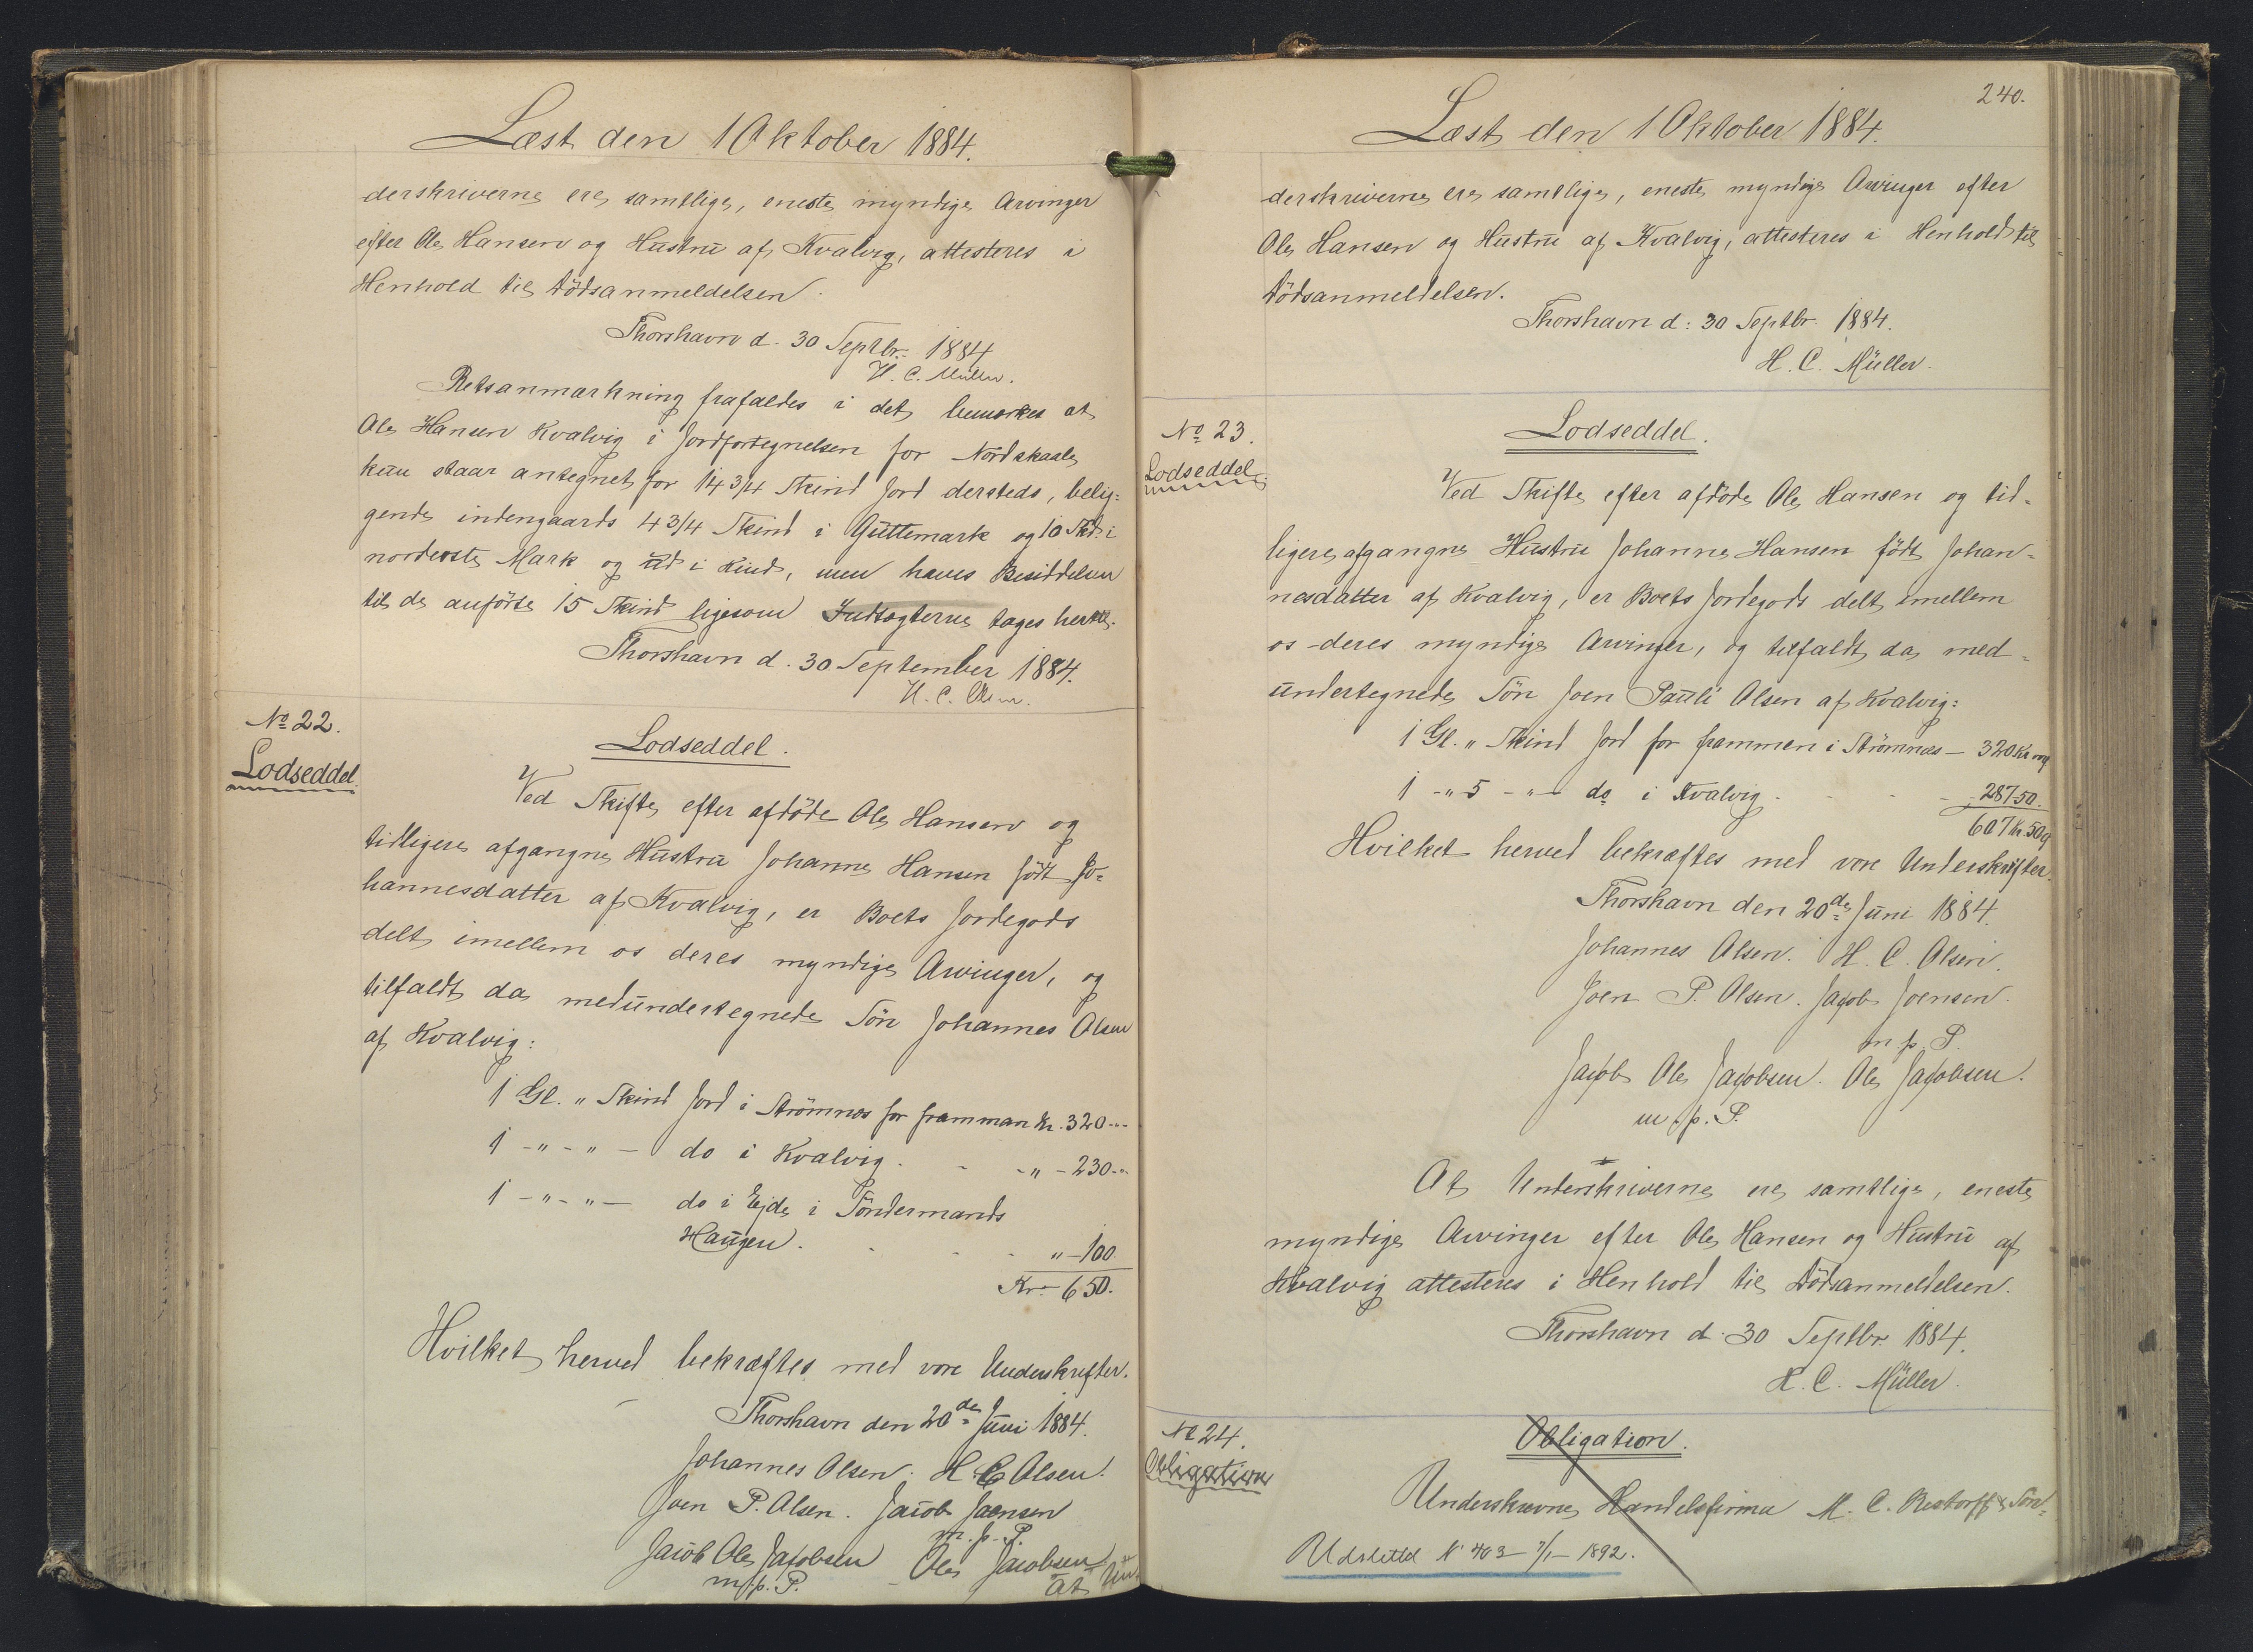 Læst den 1 Oktober 1884.
derskriverne ere samtlige, eneste myndige Arvinger
efter Ole Hansen og Hustru af Kvalvig, attesteres i
Henhold til Dödsanmeldelsen.
Thorshavn d. 30 Septbr. 1884
H. C. Müller.
Retsanmærkning frafaldes i det bemærkes at
Ole Hansen Kvalvig i Jordfortegnelsen for Nordskaale
kun staar antegnet for 14 3/4 Skind Jord dersteds, belig=
gende indengaards 4 3/4 Skind i Guttemark og 10 Skd. i
norderste Mark og ud i Kind, men hans Besiddelsen
til de anförte 15 Skind ligesom Indtægterne tages hertil.
Thorshavn d. 30 September 1884.
H. C.
No 22.
Lodseddel
Lodseddel.
Ved Skifte efter afdöde Ole Hansen og
tidligere afgangne Hustru Johanne Hansen födt Jo=
hannesdatter af Kvalvig, er Boets Jordegods
delt imellem os deres myndige Arvinger, og
tilfaldt da medundertegnede Sön Johannes Olsen
af Kvalvig:
1 Gl. " Skind Jord i Strömnæs for framman Kr. 320 --
1 - " - " - do i Kvalvig. - - " - 230 - "
1 - " - " - do i Ejde i Söndermands
Haugen. - - - " - 100
Kr. 650.
Hvilket herved bekræftes med vore Underskrifter.
Thorshavn den 20de Juni 1884.
Johannes Olsen. H C Olsen.
Joen P. Olsen. Jacob Joensen
m. p. P.
Jacob Ole Jacobsen Ole Jacobsen
m. p. P.
At Un-
240.
Læst den 1 Oktober 1884.
derskriverne ere samtlige, eneste myndige Arvinger efter
Ole Hansen og Hustru af Kvalvig, attesteres i Henhold til
Dödsanmeldelsen.
Thorshavn d: 30 Septbr. 1884.
H. C. Müller.
No 23.
Lodseddel
Lodseddel.
Ved Skifte efter afdöde Ole Hansen og tid=
ligere afgangne Hustru Johanne Hansen födt Johan=
nesdatter af Kvalvig, er Boets Jordegods delt imellem
os - deres myndige Arvinger, og tilfaldt da med=
undertegnede Sön Joen Pauli Olsen af Kvalvig:
1 Gl. " Skind Jord for frammen i Strömnæs - 320 Kr og
1 - " 5 - " - do i Kvalvig - - - - 287 50.
607 Kr. 50
Hvilket herved bekræftes med vore Underskrifter.
Thorshavn den 20de Juni 1884.
Johannes Olsen. H. C. Olsen.
Joen P. Olsen. Jacob Joensen.
m p. P.
Jacob Ole Jacobsen. Ole Jacobsen.
m. p. P.
At Underskriverne ere samtlige, eneste
myndige Arvinger efter Ole Hansen og Hustru af
Kvalvig attesteres i Henhold til Dödsanmeldelsen.
Thorshavn d. 30 Septbr. 1884.
H. C. Müller.
No 24.
Obligation
Obligation.
Underskrevne Handelsfirma M. C. Restorff & Sön=
Udslettet No 403 - 7/1 - 1892.